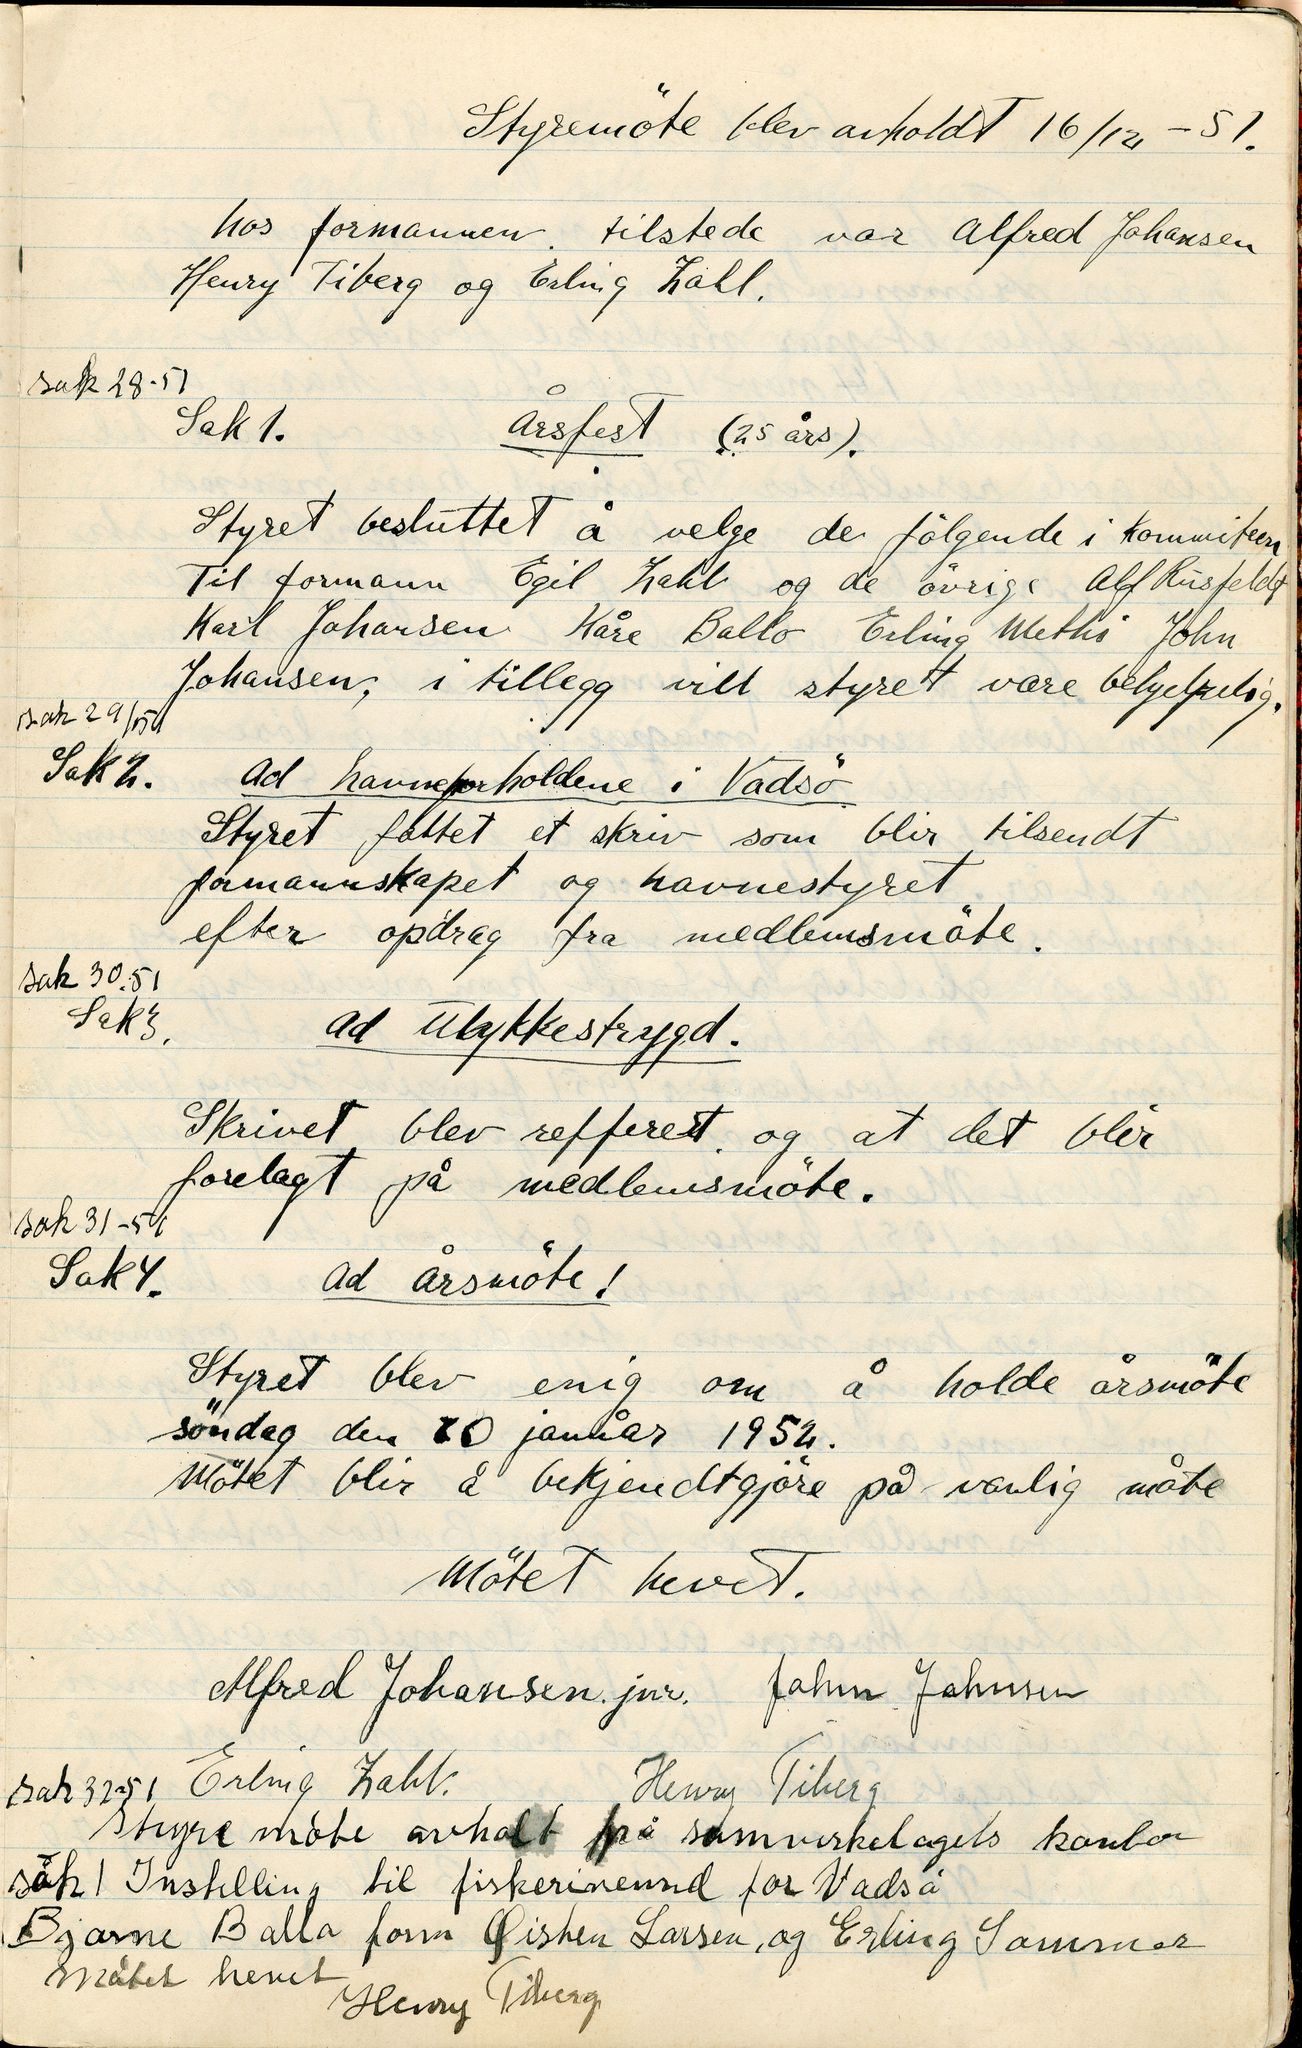 Styremöte blev avholdt 16/12 - 51.
hos formannen. tilstede var Alfred Johansen
Henry Tiberg og Erling Zahl.
sak 28-51
Sak 1. Årsfest (25 års).
Styret besluttet å velge de fölgende i kommiteen
Til formann Egil Zahl og de övrige Alf Rusfeldt
Karl Johansen Kåre Ballo Erling Methi John
Johansen, i tillegg vill styret være behjelpelig.
sak 29/51
Sak 2. Ad havneforholdene i Vadsö
Styret fattet et skriv som blir tilsendt
formannskapet og havnestyret
efter opdrag fra medlemsmöte.
sak 30.51
Sak 3. Ad Ulykkestrygd.
Skrivet blev refferert. og at det blir
forelagt på medlemsmöte.
sak 31-51
Sak 4. Ad årsmöte!
Styret blev enig om å holde årsmöte
söndag den 20 januar 1952.
Mötet blir å bekjendtgjöre på vanlig måte
Mötet hevet.
Alfred Johansen. jnr. John Johnsen
Erling Zahl. Henry Tiberg
sak 32-51
Styre möte avholt på samvirkelagets kontor
sak 1 Instelling til fiskerinemnd for Vadsö
Bjarne Balla form Øisten Larsen, og Erling Sommer
Mötet hevet
Henry Tiberg